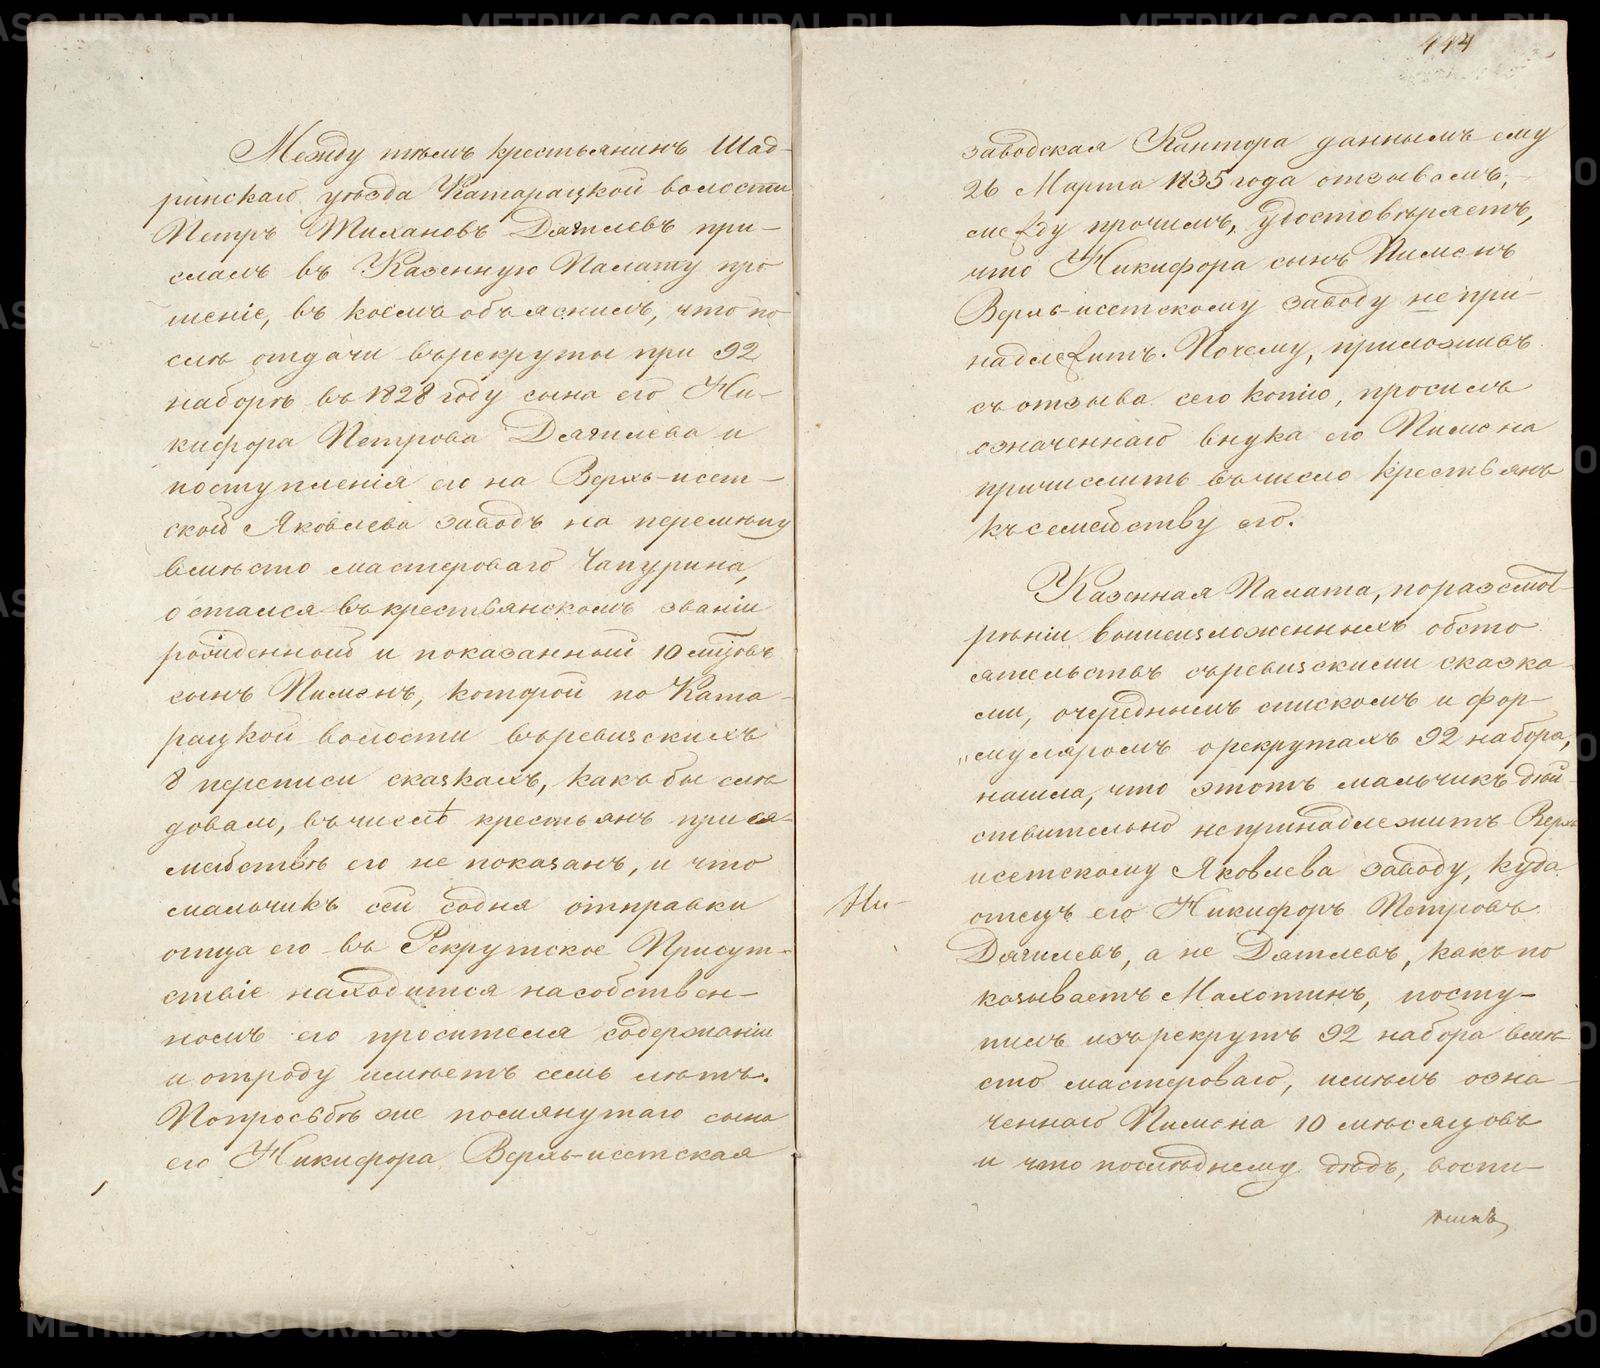 Между тѣмъ крестьянинъ Шад-
ринскаго уѣзда Катарацкой волости
Петръ Тихановъ Дягилевъ при-
слалъ въ Казенную Палату про
шеніе, въ коемъ объяснилъ, что по
слѣ отдачи въ рекруты при 92
наборѣ въ 1828 году сына его Ни-
кифора Петрова Дягилева и
поступленія его на Верхъ-исет-
ской Яковлева заводъ на перемѣну
вмѣсто мастероваго Чапурина,
остался въ крестьянскомъ званіи
рожденной и показанный 10 мѣсяцовъ
сынъ Пименъ, которой по Ката-
рацкой волости въ ревизскихъ
8 переписи сказкахъ, какъ бы слѣ
довало, въ числѣ крестьянъ при се-
мействѣ его не показанъ, и что
мальчикъ сей со дня отправки
отца его въ Рекрутское Присут-
ствіе находится на собствен-
номъ его просителя содержаніи
и отроду имѣетъ семь лѣтъ.
По просьбѣ же помянутаго сына
его Никифора Верхъ-исетская
114
заводская Кантора даннымъ ему
26 Марта 1835 года отзывомъ,
между прочимъ, удостовѣряетъ,
что Никифора сынъ Пименъ
Верхъ-исетскому заводу не при-
надлежитъ. Почему, приложивъ
съ отзыва сего копію, просилъ
означеннаго внука его Пимена
причислить въ число крестьянъ
къ семейству его.
Казенная Палата, по разсмот-
рѣніи вышеизложенныхъ обсто
ятельствъ съ ревизскими сказка-
ми, очереднымъ спискомъ и фор-
муляромъ о рекрутахъ 92 набора,
нашла, что этотъ мальчикъ дѣй-
ствительно не принадлежитъ Верхъ
исетскому Яковлева заводу, куда
отецъ его Никифоръ Петровъ
Дягилевъ, а не Дятлевъ, какъ по
казываетъ Махотинъ, посту-
пилъ изъ рекрутъ 92 набора вмѣ-
сто мастероваго, имѣлъ озна-
ченнаго Пимена 10 мѣсяцовъ
и что послѣднему дѣдъ, воспи-
Ни-